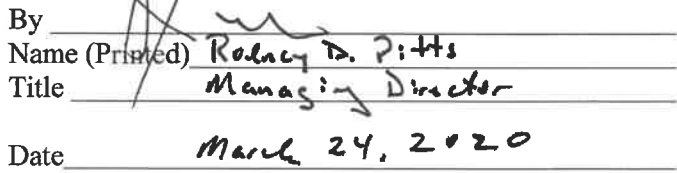 By
Name (Printed) Rodney D. Pitts
Title Managing Director
Date March 24, 2020